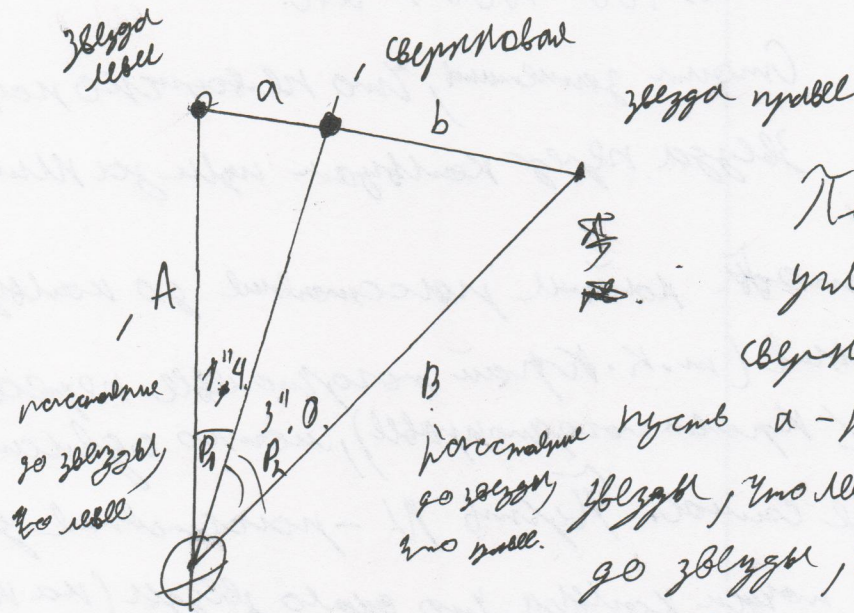 звезда
левее
сверхновая
a
b
звезда правее
A
B
1",4.
3",0.
P1
P2
расстояние
до звезды,
что левее
расстояние
до звезды,
что правее.
пусть a
звезды, что ле
до звезды,
сверхн